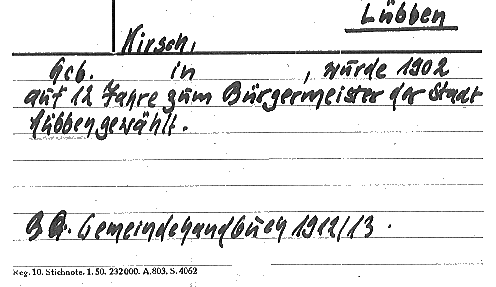 Lübben
Kirsch,
Geb. in , wurde 1902
auf 12 Jahre zum Bürgermeister der Stadt
Lübben gewählt.
Gemeindehandbuch 1912/13.
Reg. 10. Stichnote. 1. 50. 232000. A.803. S. 4062